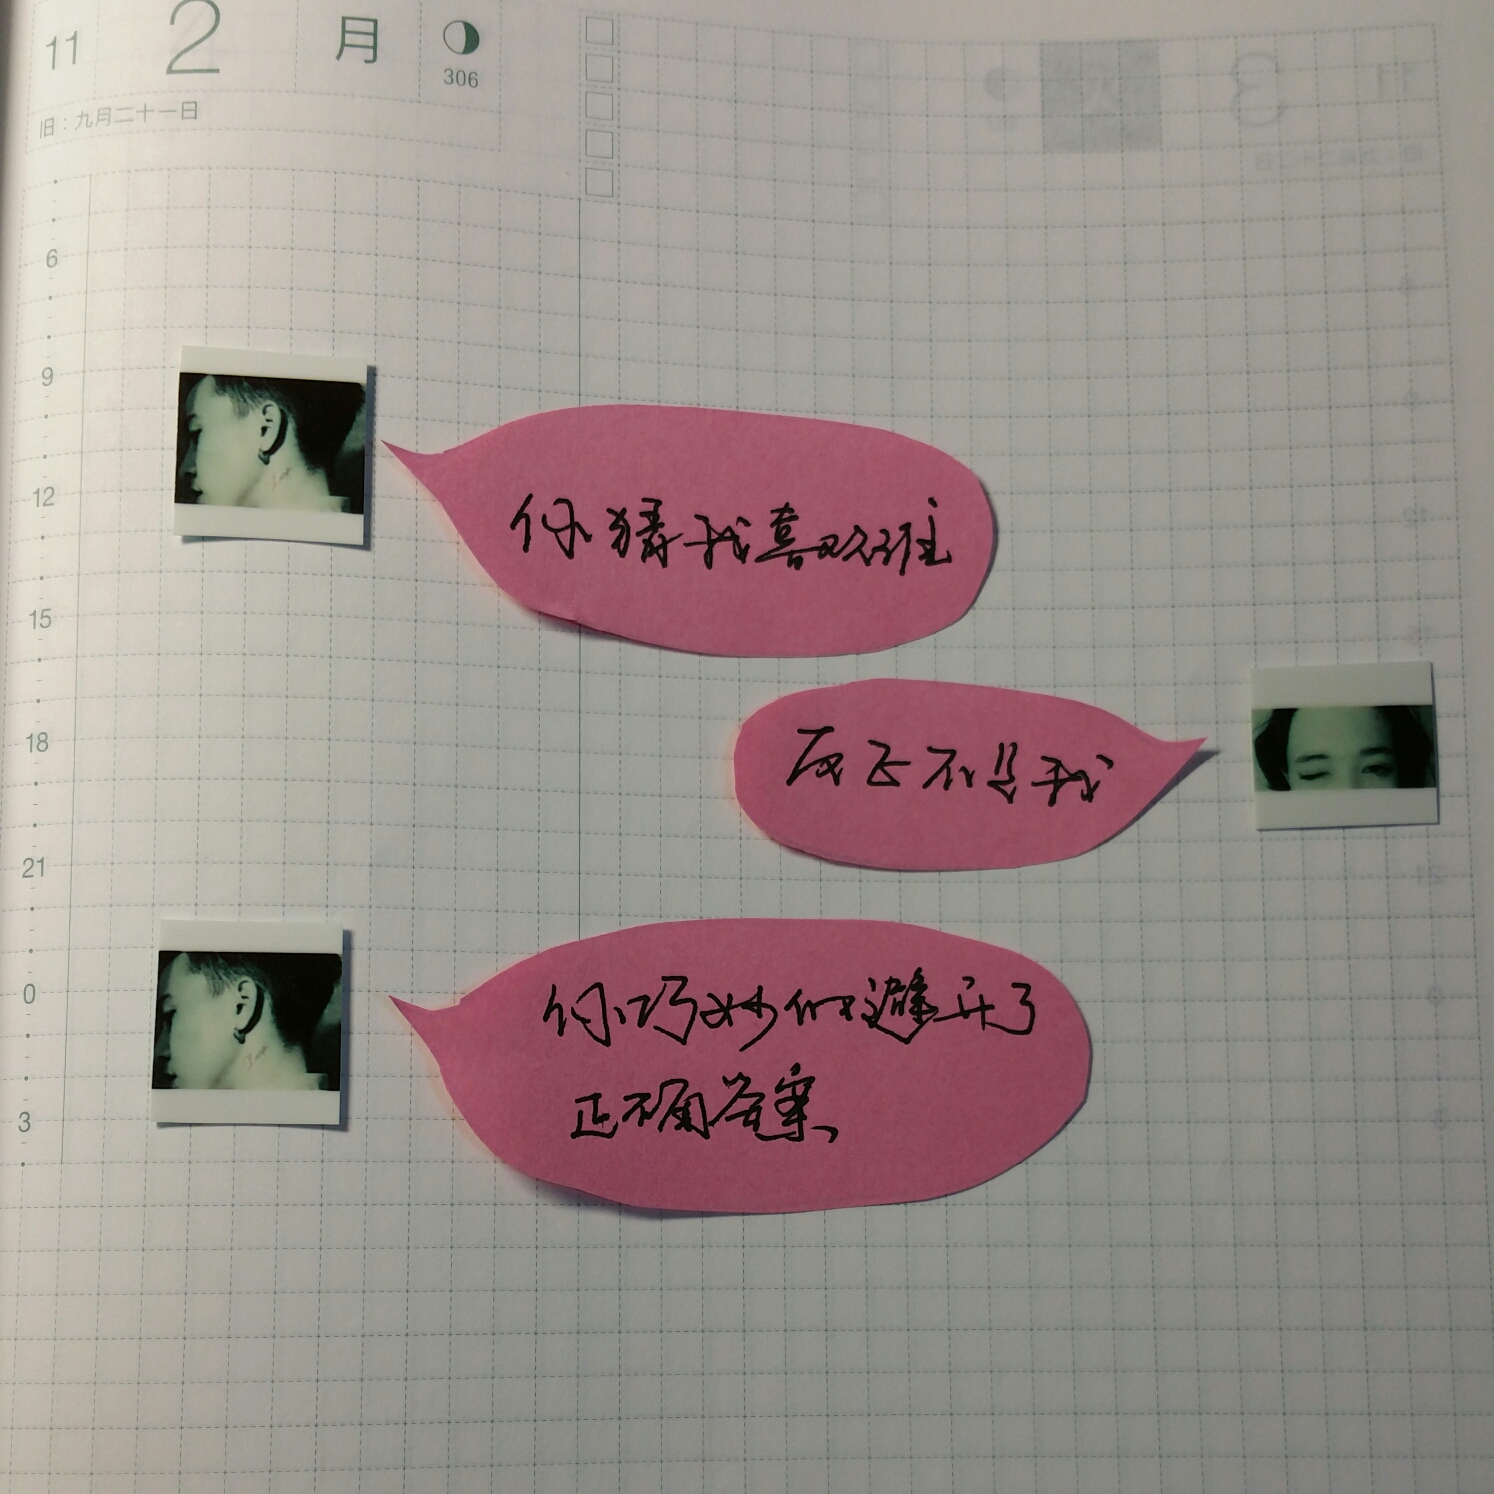 11 2 月
306
旧：九月二十一日
6
9
你猜我喜欢谁
12
15
反正不是我
18
21
你巧妙的避开了
0
正确答案
3